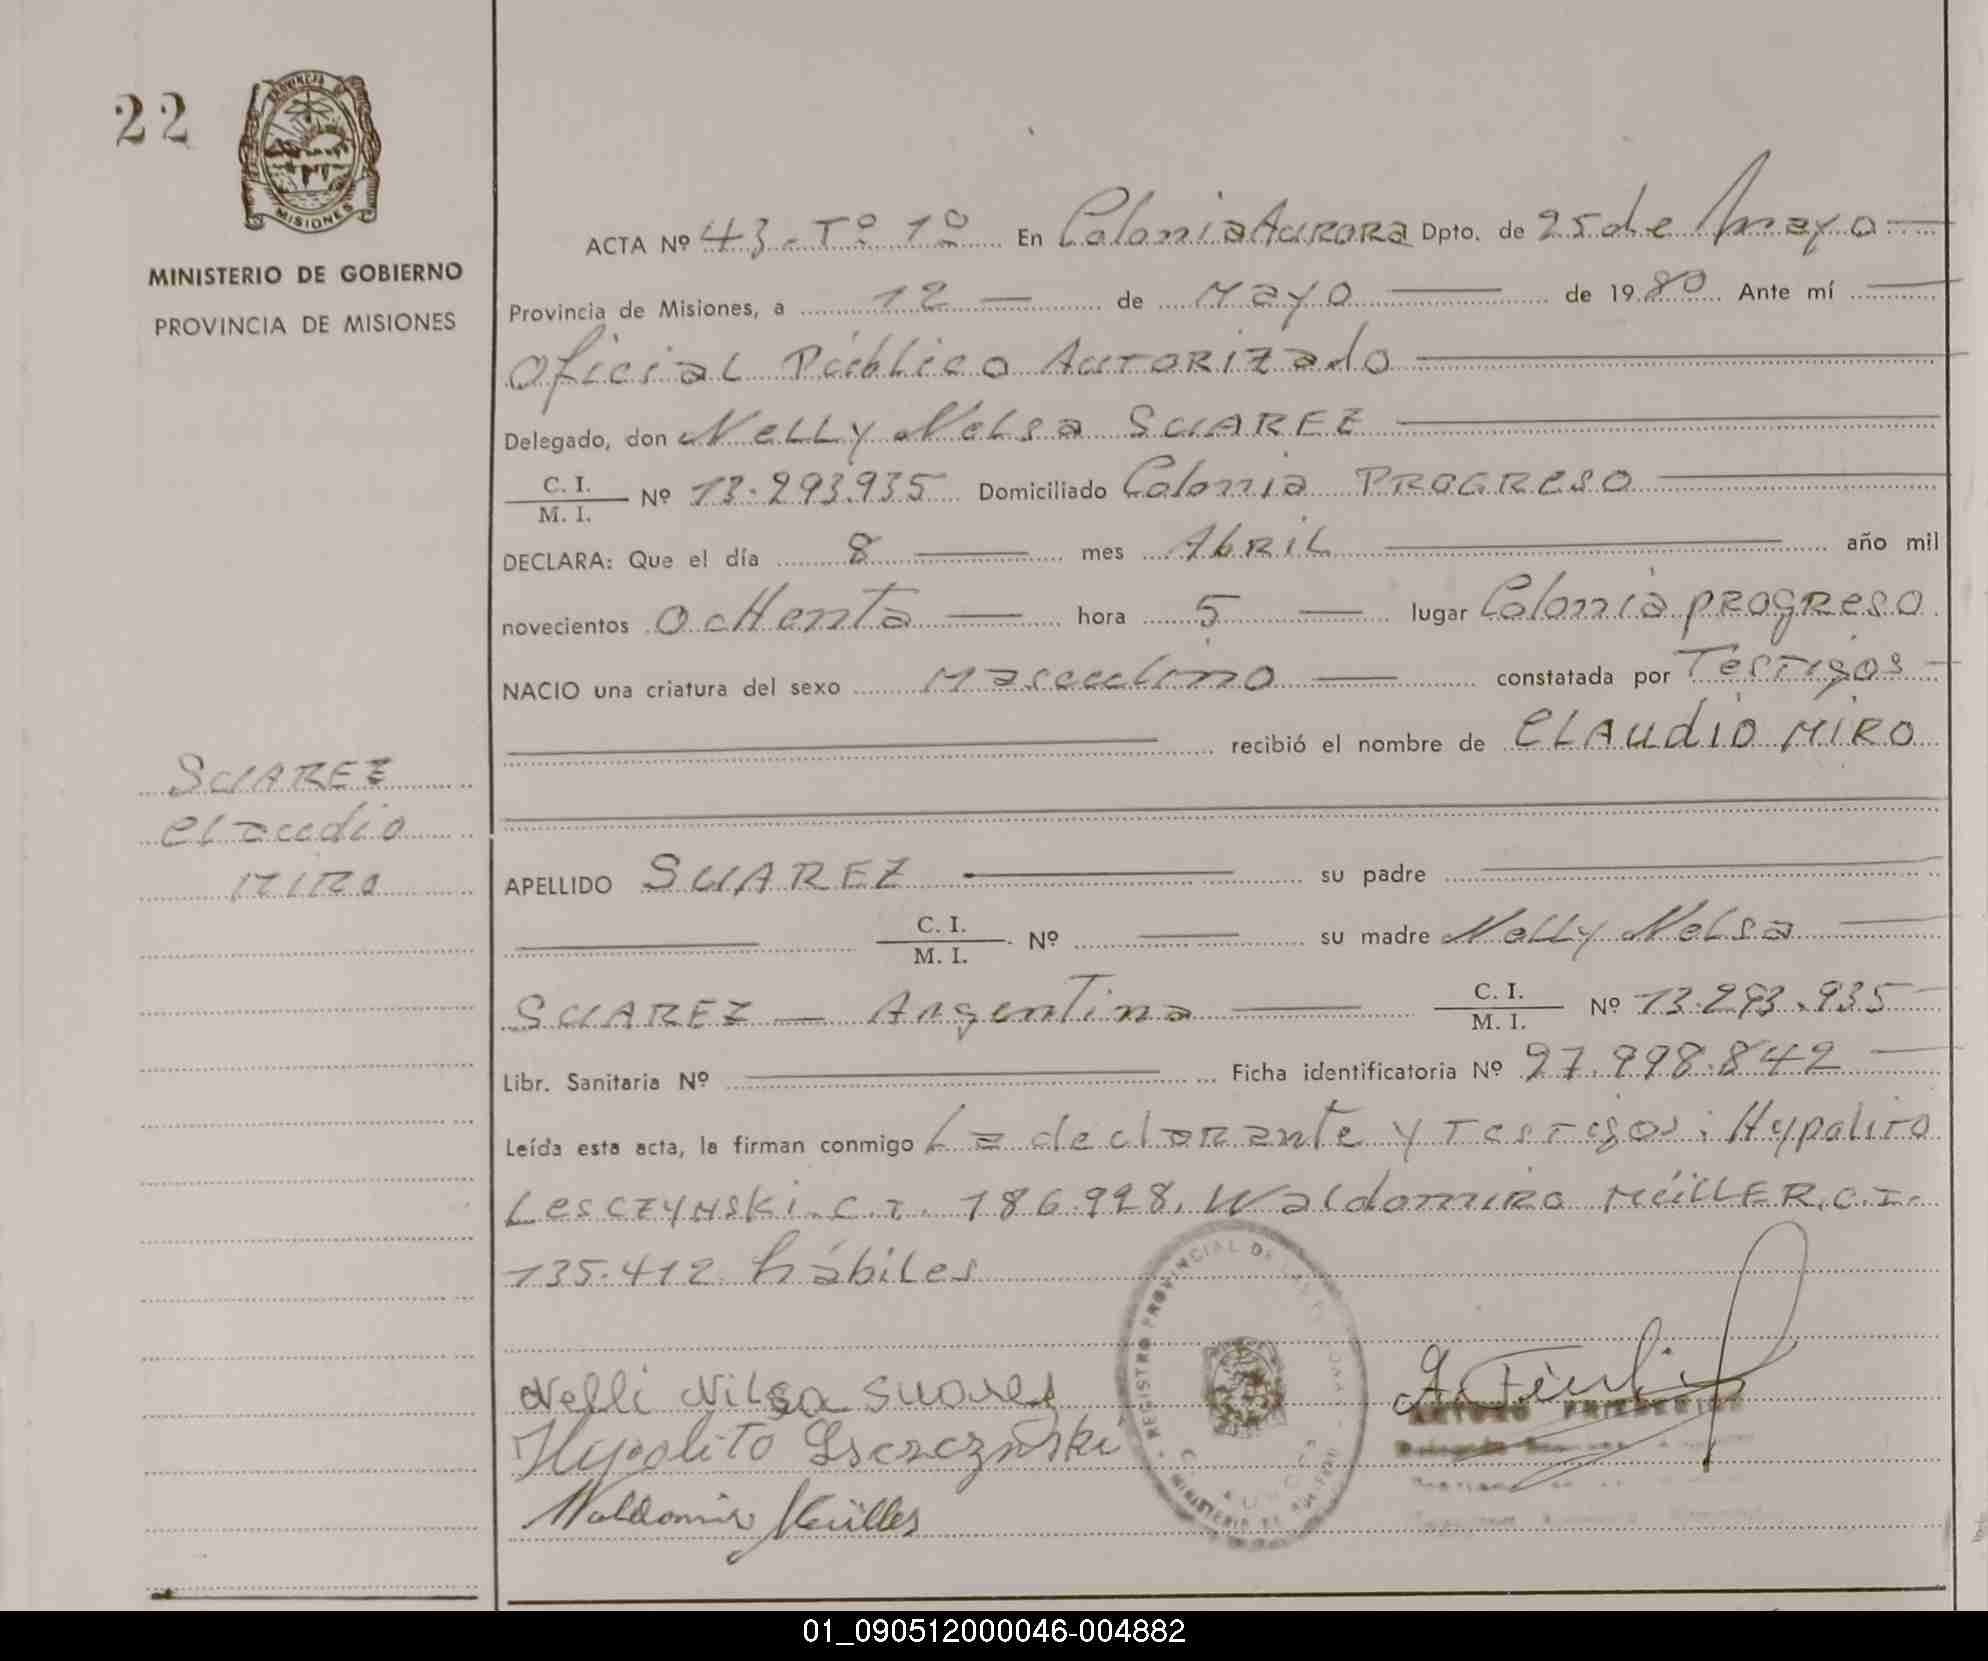 22
PROVINCIA DE
MISIONES
MINISTERIO DE GOBIERNO
PROVINCIA DE MISIONES
ACTA Nº 43-Tº 1º En Colonia Aurora Dpto. de 25 de Mayo
Provincia de Misiones, a 12 de Mayo de 1980 Ante mí
Oficial Público Autorizado
Delegado, don Nelly Nelsa SUAREZ
C. I. / M. I. Nº 13.293.935 Domiciliado Colonia Progreso
DECLARA: Que el día 8 mes Abril año mil
novecientos ochenta hora 5 lugar Colonia progreso
NACIO una criatura del sexo Masculino constatada por Testigos
recibió el nombre de CLAudio MIRO
SUAREZ
Claudio
MIRO
APELLIDO SUAREZ su padre
C. I. / M. I. Nº su madre Nelly Nelsa
SUAREZ — Argentina C. I. / M. I. Nº 13.293.935
Libr. Sanitaria Nº Ficha identificatoria Nº 27.998.842
Leída esta acta, la firman conmigo La declarante y Testigos: Hypolito
Lesczynski. C.I. 186.998, Waldomiro MüLLER. C.I.
135.412 hábiles
REGISTRO PROVINCIAL DE
MINISTERIO DE
Nelli Nilsa Suares
Hypolito
Waldomiro Müller
ARTURO
01_090512000046-004882